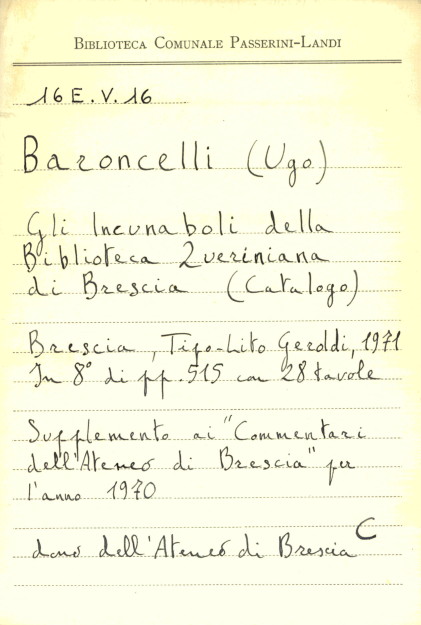 BIBLIOTECA COMUNALE PASSERINI-LANDI
16 E. V. 16
Baroncelli (Ugo)
Gli Incunaboli della
Biblioteca Queriniana
di Brescia (Catalogo)
Brescia, Tipo-Lito Geroldi, 1971
In 8° di pp. 515 con 28 tavole
Supplemento ai "Commentari
dell'Ateneo di Brescia" per
l'anno 1970
dono dell'Ateneo di Brescia C